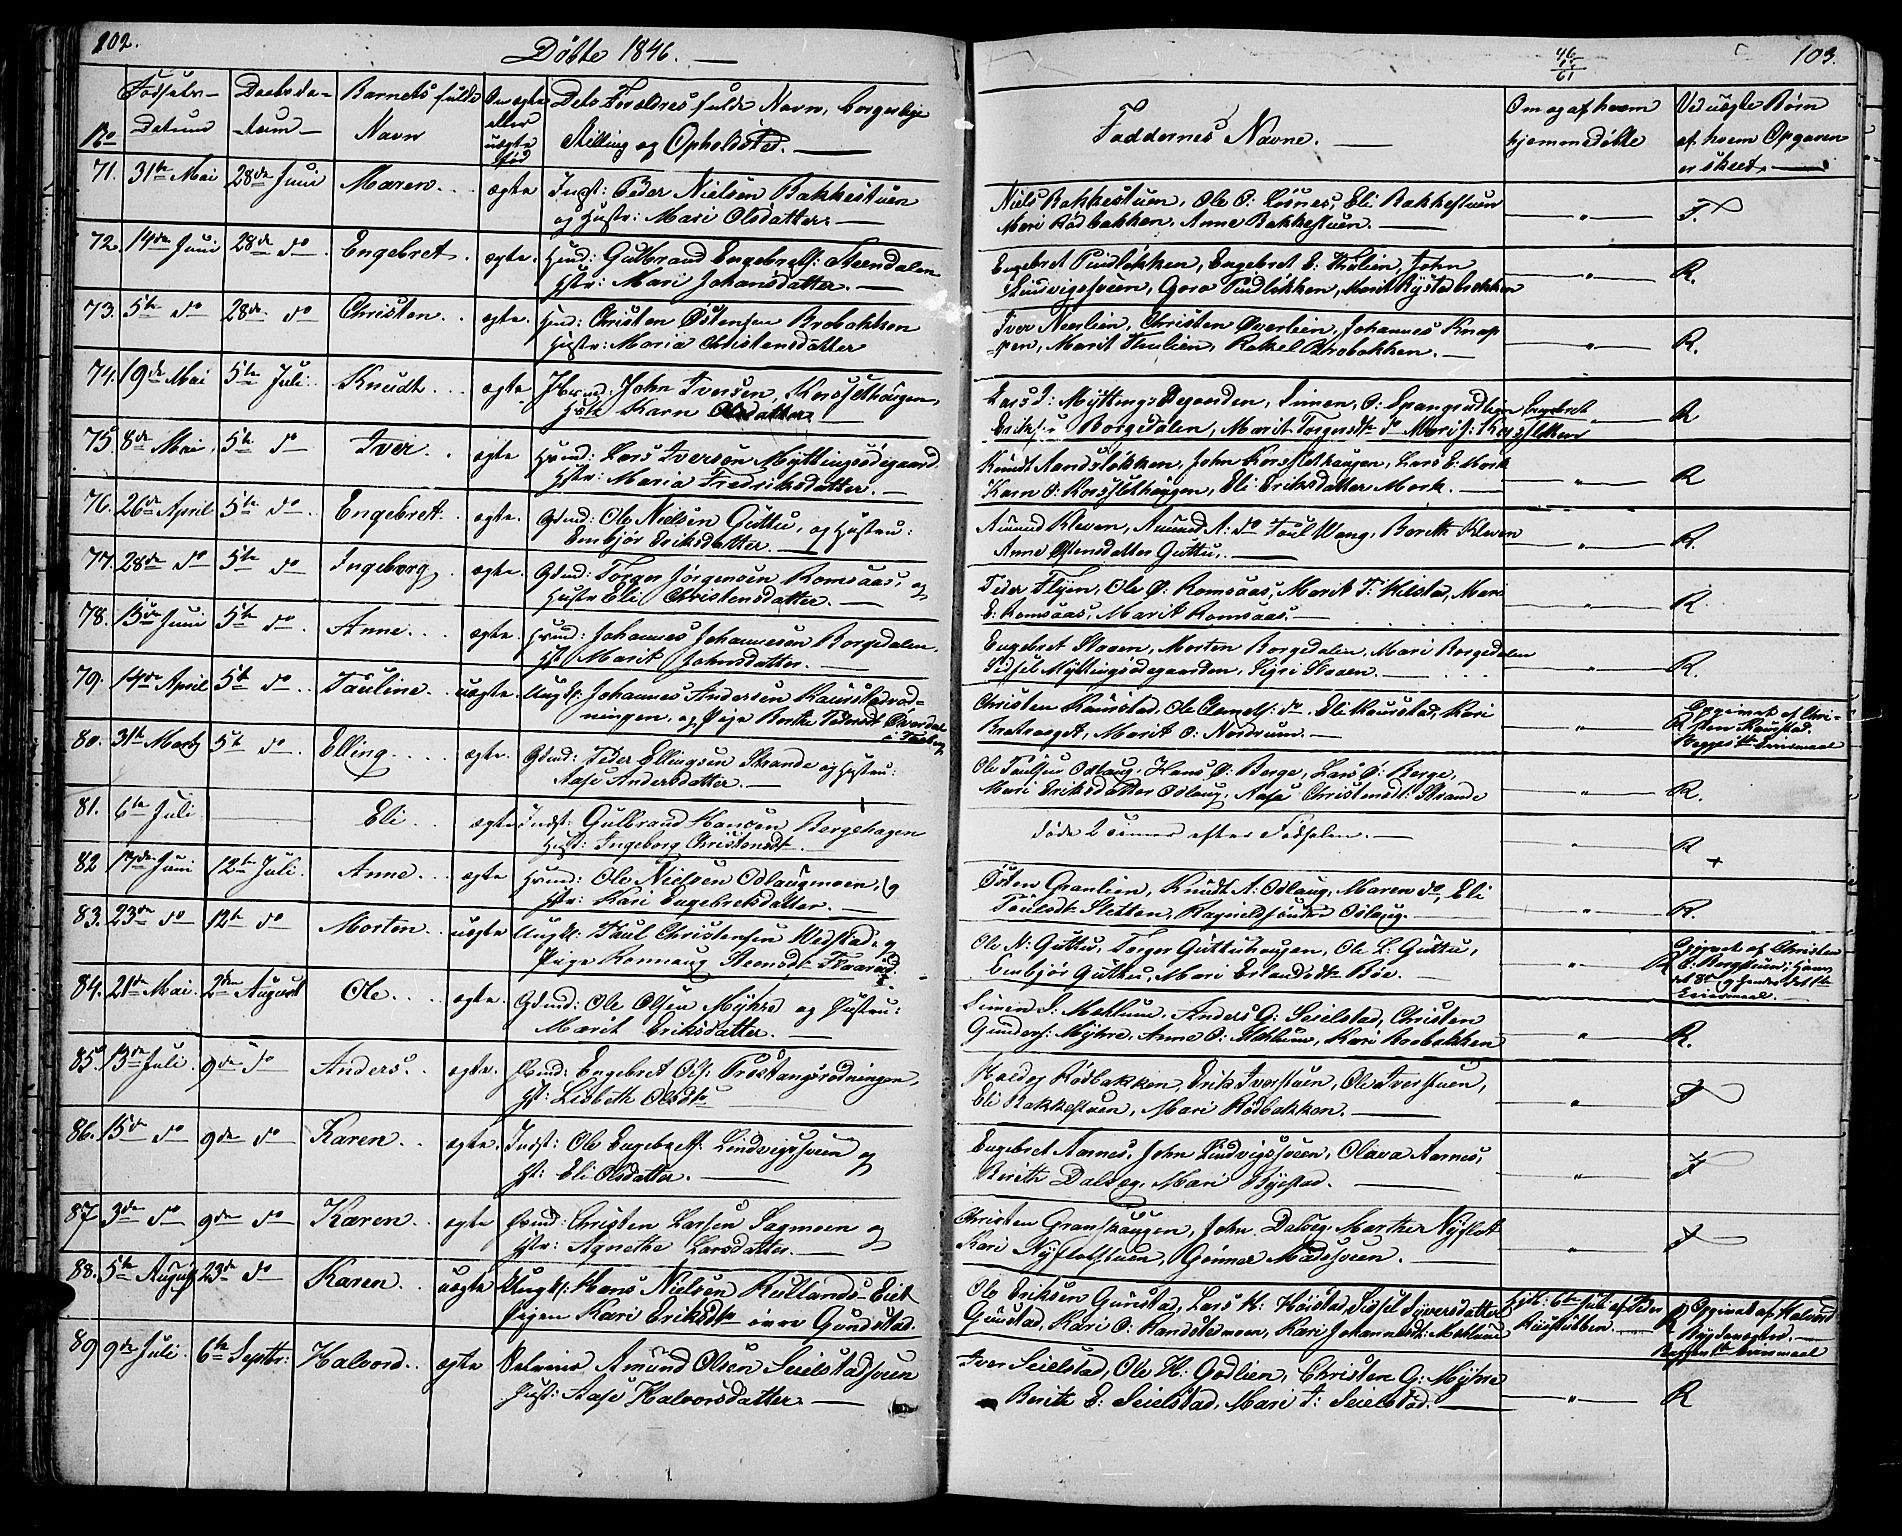 102.
Døbte 1846. —
No
Fødsels-
Datum
Daabsda-
tum
Barnets fulde
Navn
Om ægte
eller
uægte
fød
Dets Forældres fulde Navn, borgerlige
Stilling og Opholdsted. —
71. 31te Mai 28de Juni Maren. ægte Indst: Peder Nielsen Bakkestuen
og Hustr: Mari Olsdatter. —
72. 14de Juni 28de do Engebret. ægte. Huusd: Gulbrand Engebrets: Steendalen
Hstr: Mari Johansdatter. —
73. 5te do 28de do Christen. ægte. Huusd: Christen Østensen Brobakken
Hustr: Maria Christensdatter
74. 19de Mai 5te Juli. Knudt. ægte Huusd: John Iversen, Korssethougen,
Hstr Karn Olsdatter —
75. 8de Mai 5te do Iver. ægte Huusd: Lars Iversen Myttingsødegaard.
Hstr: Maria Fredriksdatter. —
76. 26de April 5te do Engebret. ægte. Gdmd: Ole Nielsen Guttu, og Hustru:
Embjør Eriksdatter. —
77. 28de do 5te do Ingeborg. ægte. Gdmd: Torger Jørgensen Romsaas, og
Hustr Eli Christensdatter. —
78. 15de Juni 5te do. Anne. ægte. Huusd: Johannes Johannesen Borgedalen,
Hst Marit Johnsdatter. —
79. 14de April 5te do. Pauline. uægte. Ungk. Johannes Andersen Kaurstadrød-
ningen, og Pige Berthe Pedersdt
80. 31te Marts 5te do. Elling. ægte. Gdmd: Peder Ellingsen Strande og Hustru:
Aase Andersdatter. —
81. 6te Juli Eli ægte Indst: Gulbrand Hansen Bergehagen
Hust: Ingeborg Christensdt.
82 17de Juni 12te Juli. Anne. ægte Huusd: Ole Nielsen Odlaugmoen, og
Hstr: Kari Engebretsdatter. —
83. 23de do 12te do Morten. uægte Ungk: Paul Christensen Vedstad, og
Pige Rønnaug Steensdt Flaarød.
84. 21de Mai 2den August Ole. ægte. Gdmd: Ole Olsen Myhre og Hustru:
Marit Eriksdatter. —
85. 13de Juli. 9de do Anders. ægte. Huusd: Engebret Ols: Prostangsrødningen,
Hst: Lisbeth Olsdtr
86. 15de do 9de do Karen. ægte. Indst: Ole Engebrets: Lindvigssveen og
Hst: Eli Olsdatter. —
87 3de do 9de do Karen. ægte Huusd: Christen Larsen Sagmoen og
Hstr: Agnethe Larsdatter. —
88. 5te August 23de do Karen. uægte Ungk: Hans Nielsen Rullands-Eiet
Pigen Kari Eriksdtr øvre Gundstad.
89 9de Juli. 6te Septbr: Halvord. ægte Selveier Amund Olsen Seielstadsveen
Hust: Aase Halvorsdatter. —
46
15
61
103.
Faddernes Navne. —
Om og af hvem
hjemmedøbte
Ved uægte Børn
af hvem Opgaven
er skeet. —
Niels Bakkestuen, Ole O: Losnes, Eli Bakkestuen
Mari Rødbakken, Anne Bakkestuen. — " F.
Engebret Pudløkken, Engebret E: Thulien, John
Lindvigssveen, Goro Pudløkken, Marit Rystadbrekken " R.
Iver Neerlien, Christen Øverlien, Johannes Knap-
pen, Marit Thulien, Rakel Brobakken. — " R.
Lars I: Myttings Degarden, Simen O: Spangrudlien Engebret
Eriksen Borgedalen, Marit Torgersdtr do Mari J: Korssethoun R
Knudt Sandsløkken, John Korssethougen, Lars E: Mork
Karn O: Korssethougen, Eli Eriksdatter Mork. — " R
Amund Kleven, Amund A: do Poul Wang, Berith Kleven
Anne Østensdatter Guttu. — " R.
Peder Flyen, Ole O: Romsaas, Marit P: Kilstad, Mari
E: Romsaas, Marit Romsaas. — " R.
Engebret Staven, Morten Borgedalen, Mari Borgedalen
Sidsel Myttingsødegaarden, Sigri Staven. — " R.
Christen Kaurstad, Ole Clemets: do. Eli Kaurstad, Kari
Bratvaaget, Marit O: Nordrum. — Opgivet af Chri-
sten Kaurstad.
Begges 1te Leiermaal
Ole Paulsen Odlaug, Hans O: Berge, Lars O: Berge,
Mari Eriksdatter Odlaug, Aase Christensdt: Strande " R.
døde 2 timer efter Fødselen. — " R
Østen Granlien, Knudt A: Odlaug, Maren do, Eli
Poulsdt Sletten, Ragnild Odlaug. — " R.
Ole N: Guttu, Torger Guttuhougen, Ole L: Guttu,
Embjør Guttu, Mari Erlandsdt Bøe. — " Opgivet af Christen
E: Bergstuen; Hans
det 3de og hendes det 1te
Leiermaal —
Simen S: Mælum, Anders G: Seielstad, Christen
Gunders: Myhre, Anne O: Mælum, Kari Brobakken " R.
Haldog Rødbakken, Erik Iverstuen, Ole Iverstuen,
Eli Bakkestuen, Mari Rødbakken. — " F
Engebret Aarnes, John Lindvigssveen, Olava Aarnes,
Berith Dalseg, Mari Byestad. — " F
Christen Granshougen, John Dalseg, Marther Nysløt
Kari Nysløtstuen, Gunner Madssveen. — " F
Ole Eriksen Gunstad, Lars H: Høistad, Sidsel Syversdatter
Gunstad, Kari O: Randklevmoen, Kari Johannesdt: Mælum Hjd: 6te Juli af Peder
Riisstubben. — R Opgivet af Halvord
Begges 1te Leiermaal
Iver Seielstad, Ole H: Godlien, Christen G: Myhre
Berith E: Seielstad, Mari I: Seielstad. — " R